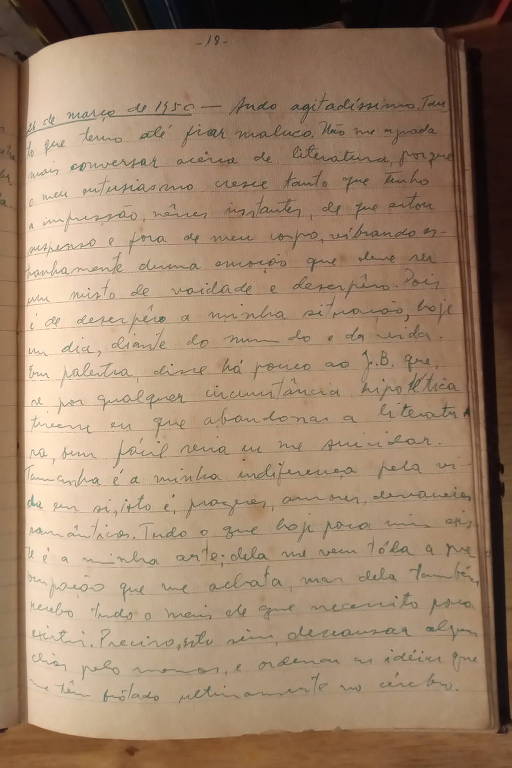 -18-
21 de março de 1950 — Ando agitadíssimo. Tan-
to que temo até ficar maluco. Não me agrada
mais conversar acêrca de literatura, porque
o meu entusiasmo cresce tanto que tenho
a impressão, nêsses instantes, de que estou
suspenso e fora de meu corpo, vibrando es-
tranhamente duma emoção que deve ser
um misto de vaidade e desespêro. Pois
é de desespêro a minha situação, hoje
um dia, diante do mundo e da vida.
Em palestra, disse há pouco ao J.B. que,
se por qualquer circunstância hipotética
tivesse eu que abandonar a literatu
ra, bem fácil seria eu me suicidar.
Tamanha é a minha indiferença pela vi-
da em si, isto é, prazeres, amores, devaneios
românticos. Tudo o que hoje para mim exis-
te é a minha arte; dela me vem tôda a preo
cupação que me achata, mas dela também
recebo tudo o mais de que necessito para
existir. Preciso, isto sim, descansar alguns
dias pelo menos, e ordenar as idéias que
me têm brotado ultimamente no cérebro.